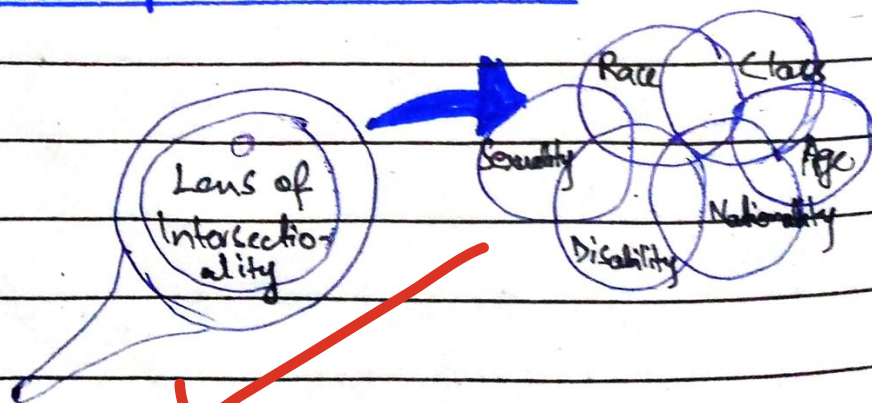 Lens of
Intersectio-
ality
Race
Class
Sexuality
Age
Nationality
Disability